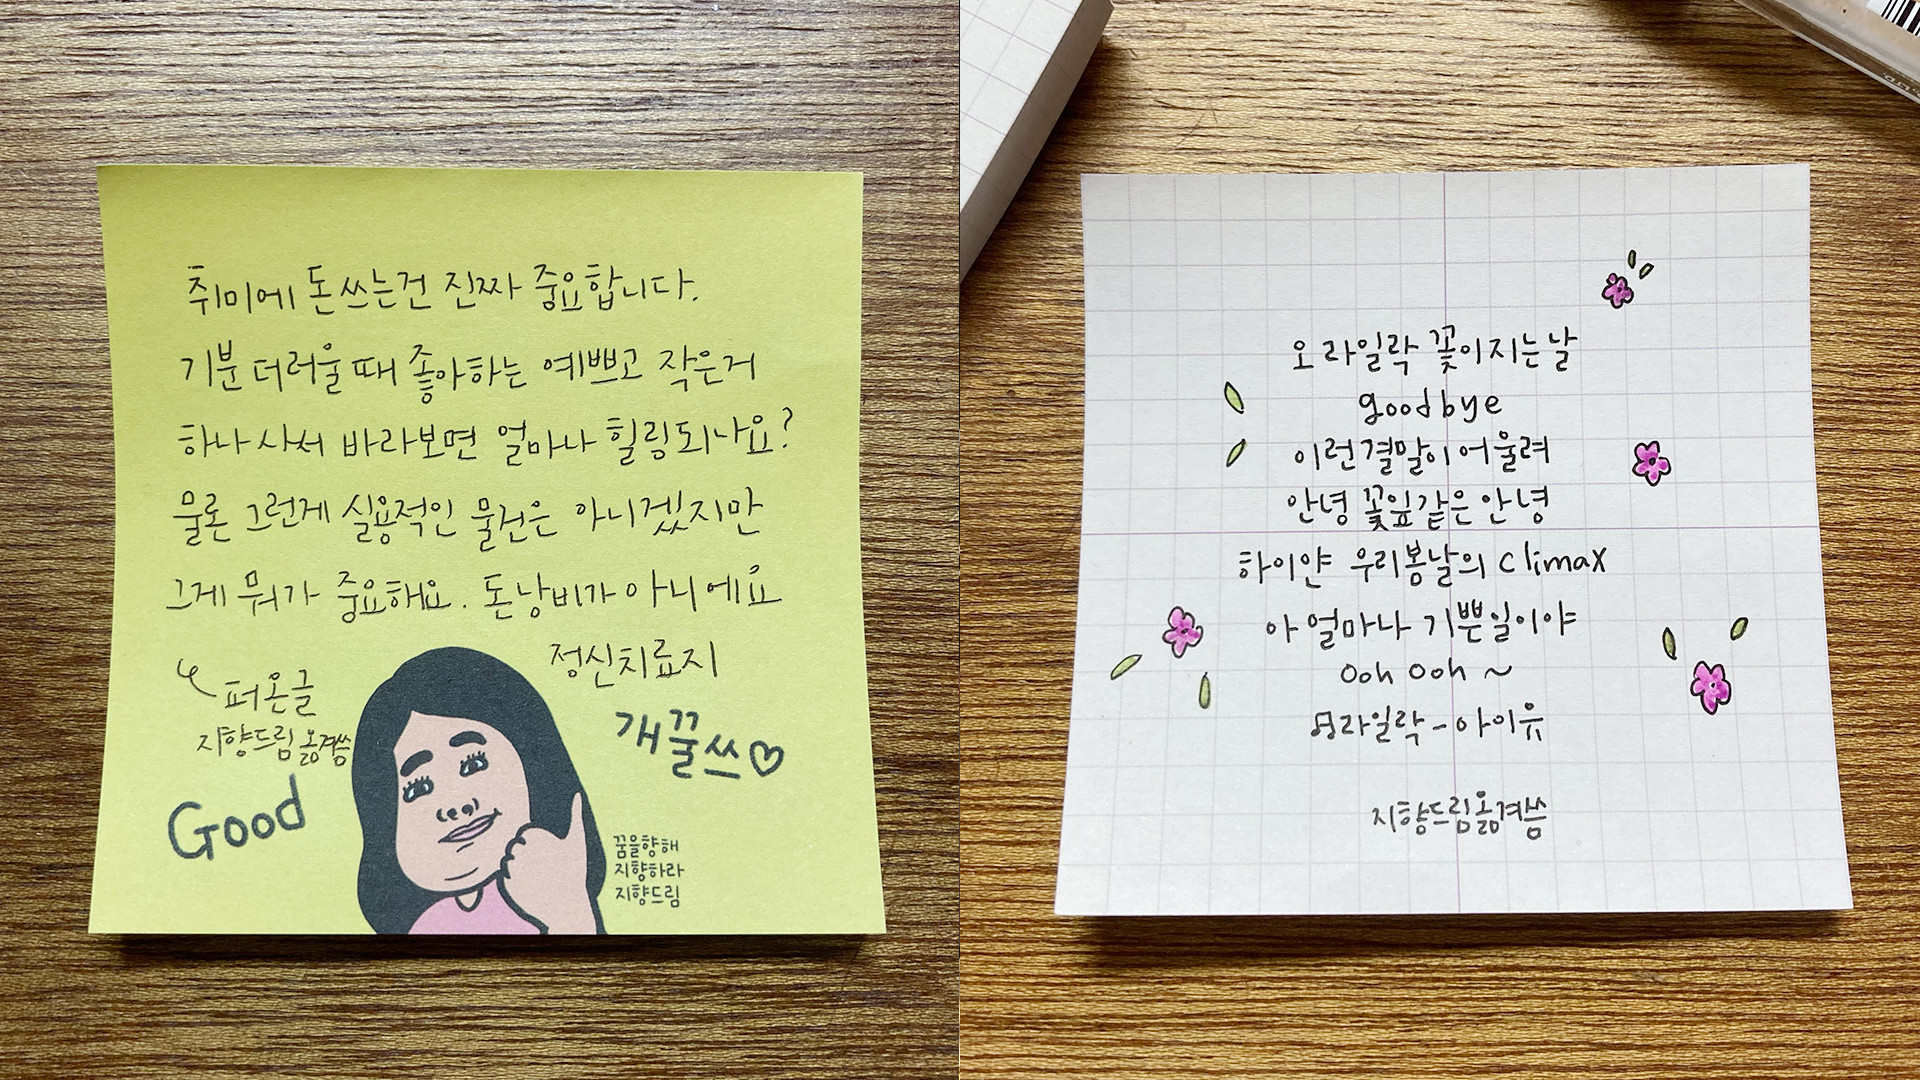 취미에 돈쓰는건 진짜 중요합니다.
기분 더러울때 좋아하는 예쁘고 작은거
하나 사서 바라보면 얼마나 힐링되나요?
물론 그런게 실용적인 물건은 아니겠지만
그게 뭐가 중요해요. 돈낭비가 아니에요
정신치료지
퍼온글
지향드림 옮겨씀
개꿀쓰♡
Good
꿈을향해
지향하라
지향드림
오 라일락 꽃이지는날
goodbye
이런결말이 어울려
안녕 꽃잎같은 안녕
하이얀 우리봄날의 climax
아 얼마나 기쁜일이야
Ooh Ooh ~
라일락 - 아이유
지향드림옮겨씀